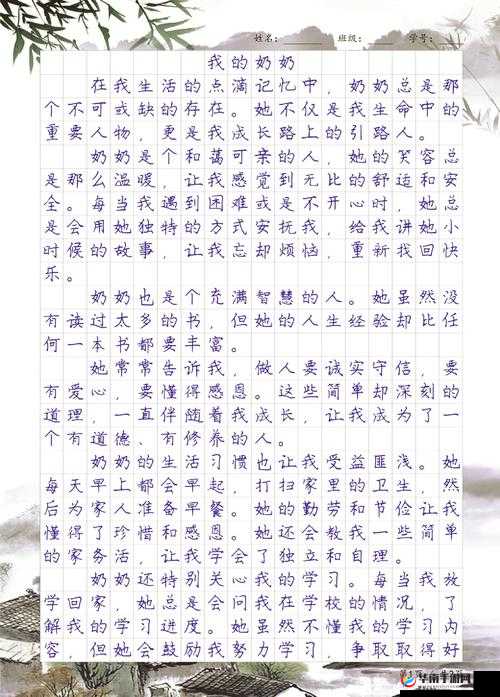 姓名：
班级：
学号：
我的奶奶
在我生活的点滴记忆中，奶奶总是那
个不可或缺的存在。她不仅是我生命中的
重要人物，更是我成长路上的引路人。
奶奶是个和蔼可亲的人，她的笑容总
是那么温暖，让我感觉到无比的舒适和安
全。每当我遇到困难或是不开心时，她总
是会用她独特的方式安抚我，给我讲她小
时候的故事，让我忘却烦恼，重新找回快
乐。
奶奶也是个充满智慧的人。她虽然没
有读过太多的书，但她的人生经验却比任
何一本书都要丰富。
她常常告诉我，做人要诚实守信，要
有爱心，要懂得感恩。这些简单却深刻的
道理，一直伴随着我成长，让我成为了一
个有道德、有修养的人。
奶奶的生活习惯也让我受益匪浅。她
每天早上都会早起，打扫家里的卫生，然
后为家人准备早餐。她的勤劳和节俭让我
懂得了珍惜和感恩。她还会教我一些简单
的家务活，让我学会了独立和自理。
奶奶还特别关心我的学习。每当我放
学回家，她总是会问我在学校的情况，了
解我的学习进度。她虽然不懂我的学习内
容，但她会鼓励我努力学习，争取取得好
华南手游网